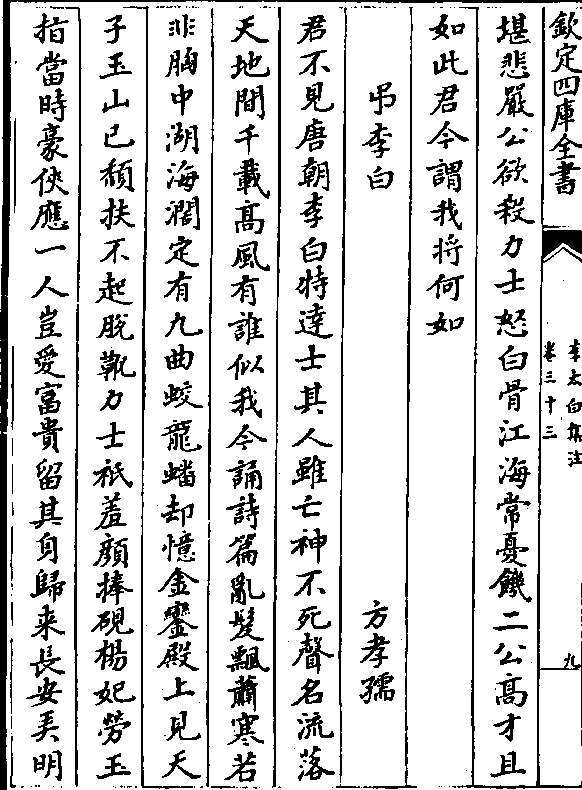 欽定四庫全書
李太白集注
卷三十三
九
堪悲嚴公欲殺力士怒白骨江海常憂饑二公髙才且
如此君今謂我将何如
弔李白
方孝孺
君不見唐朝李白特達士其人雖亡神不死聲名流落
天地間千載髙風有誰似我今誦詩篇亂髮飄蕭寒若
非胸中湖海濶定有九曲蛟龍蟠却憶金鑾殿上見天
子玉山已頽扶不起脫鞾力士祇羞顔捧硯楊妃勞玉
指當時豪俠應一人豈愛富貴留其身歸来長安弄明